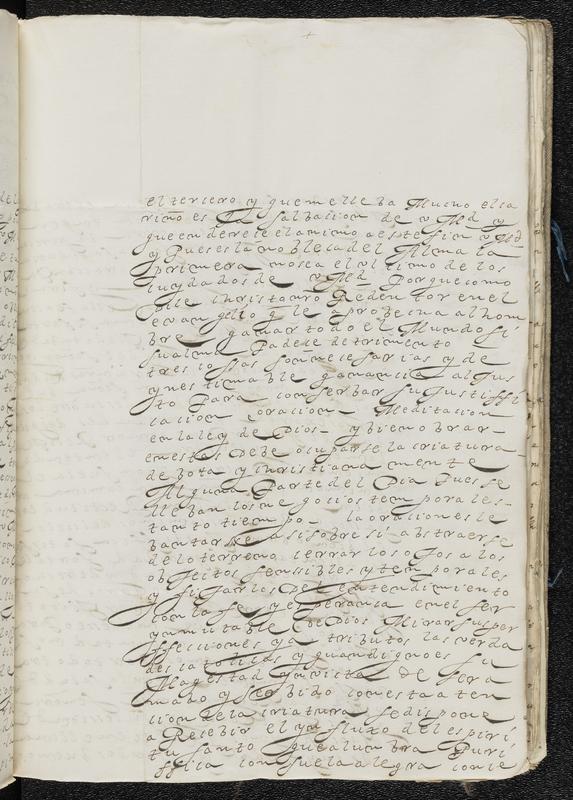 el tercero y que me lleba Mucho el ca
riño es La salbacion de vMd y
que enderece el animo a este fin vMd
y Pues es la nobleca del Alma la
primera no sea el vltimo de los
cuydados de vMd Porque como
Dice christo nro Redentor en el
evangelio q le aprobecha al hom
bre ganar todo el Mundo si
su alma Padece detrimento
tres cossas son necesarias y de
ynestimable ganancia al Jus
to Para conserbar su Justiffi
cacion oracion Meditacion
en la ley de Dios y bien obrar
en estas Debe ocuparse la criatura
debota y christianamente
Alguna Parte del Dia Pues se
lleban los negocios temporales
tanto tiempo la oracion es le
bantarse a si sobre si abstraerse
de lo terreno cerrar los ojos a los
objeitos senssibles y temporales
y fijarlos Del entendimiento
con la fe y esperança en el ser
ynmutable De Dios Mirar sus per
ffecciones y atributos las verda
des catolicas y quan digno es su
Magestad ynvicta De ser a
mado y serbido con esta aten
cion de la criatura se dispone
a Recebir el ynfluxo del espiri
tu santo que alumbra Puri
ffica consuela alegra con ce